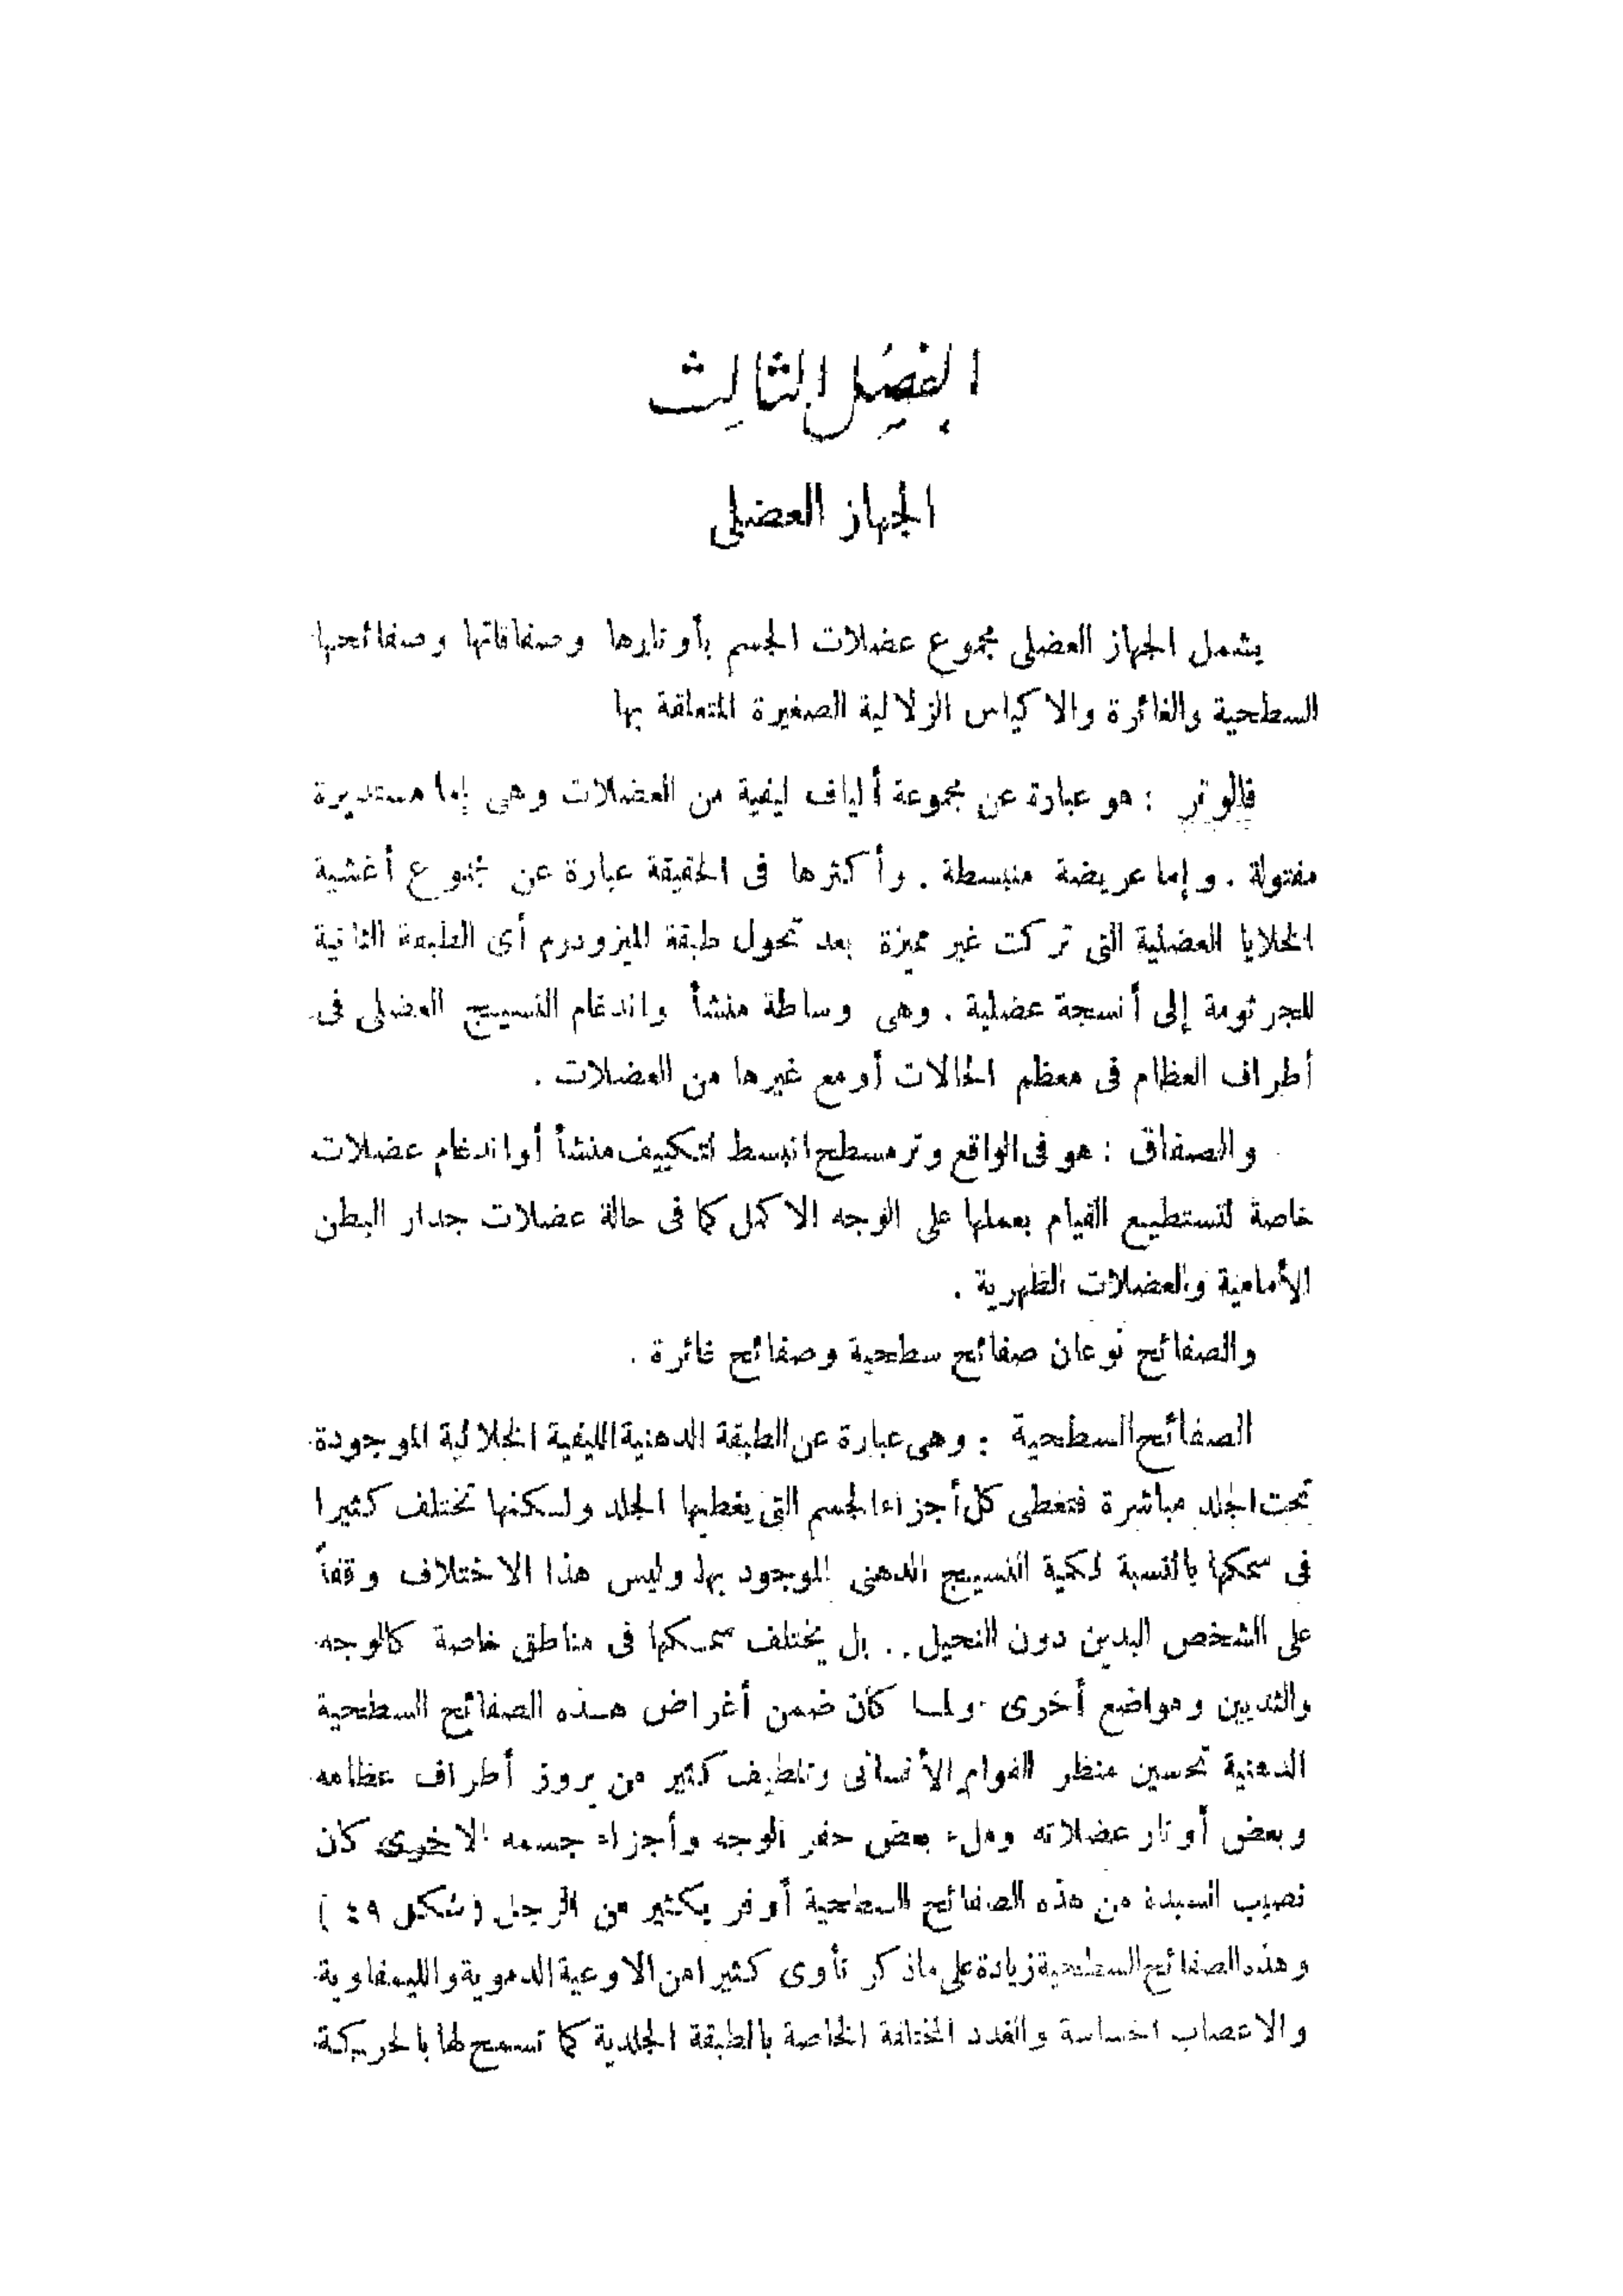 الفصل الثالث
الجهاز العضلى
يشمل الجهاز العضلى مجموع عضلات الجسم بأوتارها وصفاقاتها وصفائحها
السطحية والغائرة والاكياس الزلالية الصغيرة المتعلقة بها
فالوتر : هو عبارة عن مجموعة ألياف ليفية من العضلات وهى إما مستديرة
مفتولة . وإما عريضة منبسطة . وأكثرها فى الحقيقة عبارة عن مجموع أغشية
الخلايا العضلية التى تركت غير مميزة بعد تحول طبقة الميزودرم أى الطبقة الثانية
للجرثومة إلى أنسجة عضلية . وهى وساطة منشأ واندغام النسيج العضلى فى
أطراف العظام فى معظم الحالات أو مع غيرها من العضلات .
والصفاق : هو فى الواقع وتر مسطح انبسط لتكييف منشأ أو اندغام عضلات
خاصة لتستطيع القيام بعملها على الوجه الاكمل كما فى حالة عضلات جدار البطن
الأمامية والعضلات الظهرية .
والصفائح نوعان صفائح سطحية وصفائح غائرة .
الصفائح السطحية : وهى عبارة عن الطبقة الدهنية الليفية الخلالية الموجودة
تحت الجلد مباشرة فتغطى كل أجزاء الجسم التى يغطيها الجلد ولكنها تختلف كثيرا
فى سمكها بالنسبة لكمية النسيج الدهنى الموجود بها وليس هذا الاختلاف وقفاً
على الشخص البدين دون النحيل .. بل يختلف سمكها فى مناطق خاصة كالوجه
والثديين ومواضع أخرى ولما كان ضمن أغراض هذه الصفائح السطحية
الدهنية تحسين منظر القوام الأنسانى وتلطيف كثير من بروز أطراف عظامه
وبعض أوتار عضلاته وملء بعض حفر الوجه وأجزاء جسمه الاخرى كان
نصيب السيدة من هذه الصفائح السطحية أوفر بكثير من الرجل (شكل ٤٩ )
وهذه الصفائح السطحية زيادة على ماذكر تأوى كثيرا من الاوعية الدموية والليمفاوية
والاعصاب الحساسة والغدد المختلفة الخاصة بالطبقة الجلدية كما تسمح لها بالحركة